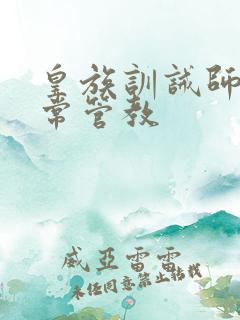 皇族訓誡師
常管教
威亞雷雷
未经同意禁止转载